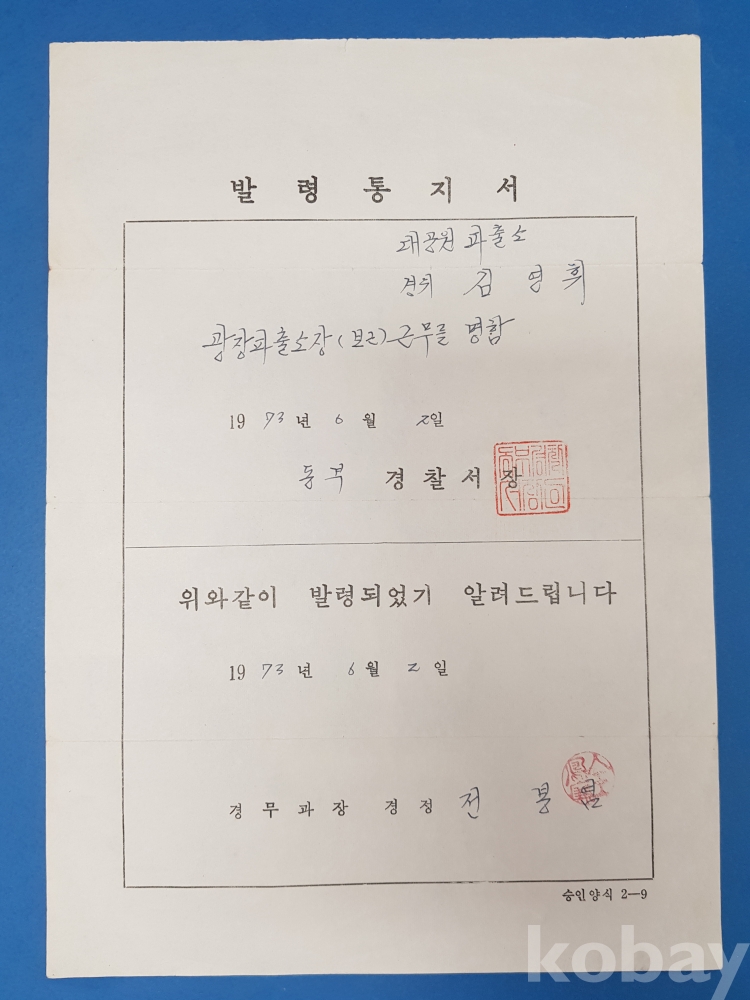 발령통지서
대공원 파출소
경위 김영휘
광장파출소장(보리)근무를 명함
1973년 6월 2일
동부 경찰서장
위와같이 발령되었기 알려드립니다
1973년 6월 2일
경무과장 경정 전봉
승인양식 2-9
kobay